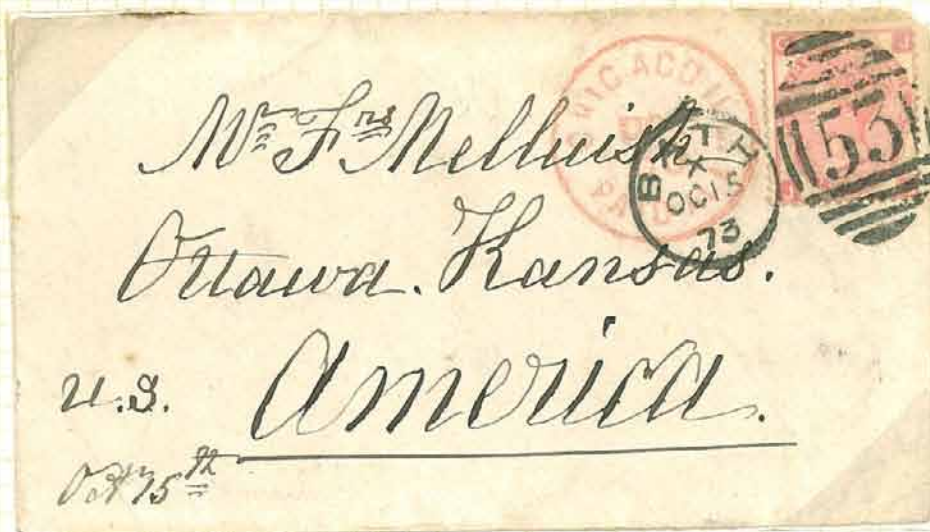 CHICAGO ILL
PAID
BATH
X
OC 15
73
53
Mr Frs Melluish
Ottawa. Kansas.
America.
U.S.
Oct 15